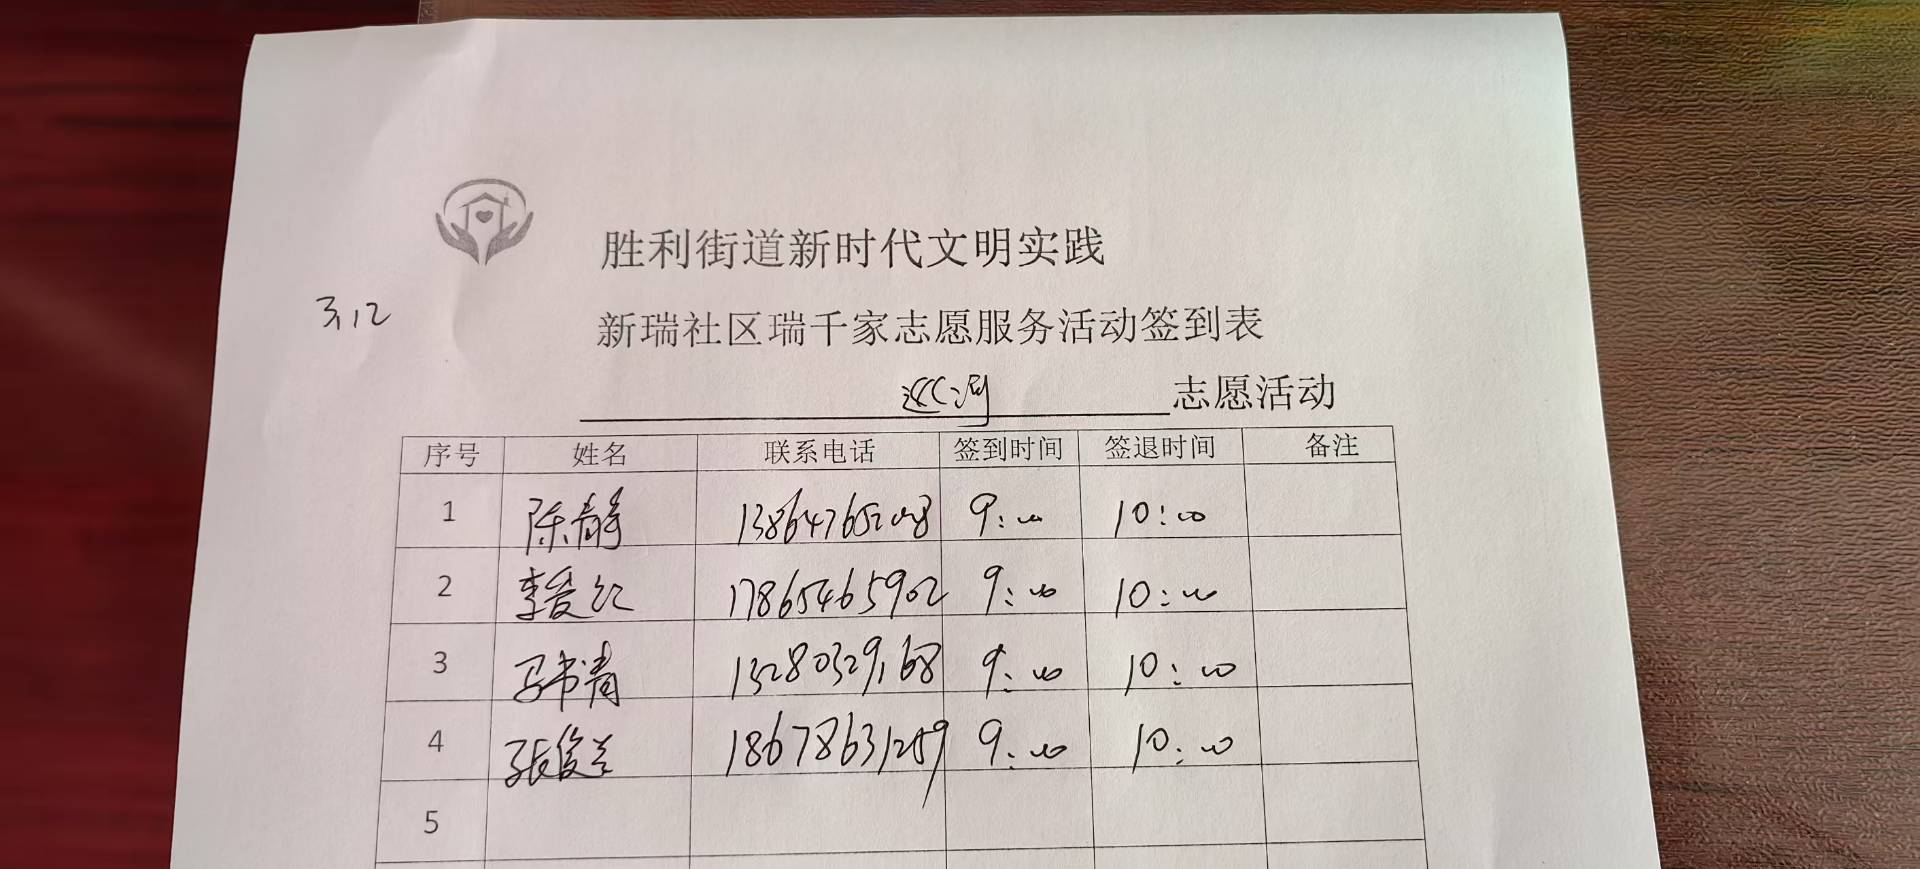 胜利街道新时代文明实践
3.12
新瑞社区瑞千家志愿服务活动签到表
巡河 志愿活动
序号 姓名 联系电话 签到时间 签退时间 备注
1 陈静 13864765208 9:00 10:00
2 李爱红 17865465902 9:00 10:00
3 马书青 13280329168 9:00 10:00
4 张俊兰 18678631259 9:00 10:00
5